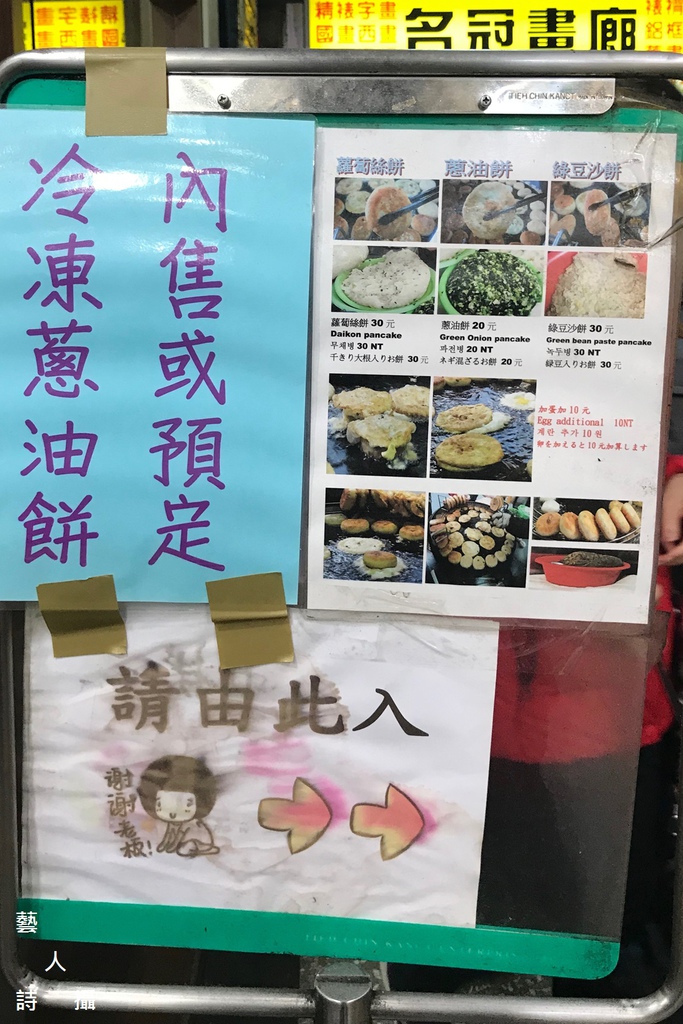 精裱字畫
國畫西畫
名冠畫廊
精裱字畫
國畫西畫
鋁框
內售或預定
冷凍蔥油餅
蘿蔔絲餅
蔥油餅
綠豆沙餅
蘿蔔絲餅 30 元
Daikon pancake
무채병 30 NT
千きり大根入りお餅 30 元
蔥油餅 20 元
Green Onion pancake
파전병 20 NT
ネギ混ざるお餅 20 元
綠豆沙餅 30 元
Green bean paste pancake
녹두병 30 NT
綠豆入りお餅 30 元
加蛋加 10 元
Egg additional 10NT
계란 추가 10 원
卵を加えると 10 元加算します
請由此入
謝謝老板!
藝人詩攝